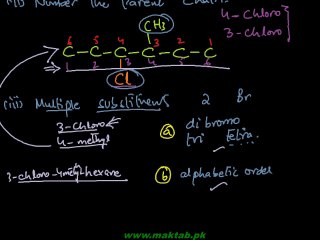 (ii) Number the Parent Chain.
4-Chloro
3-chloro
CH3
6 5 4 3 2 1
C–C–C–C–C–C
1 2 3 4 5 6
Cl
(iii) Multiple substituent 2 Br
3-Chloro
4-methyl
a di bromo
tri tetra...
3-chloro-4-methyl hexane
b alphabetic order
www.maktab.pk